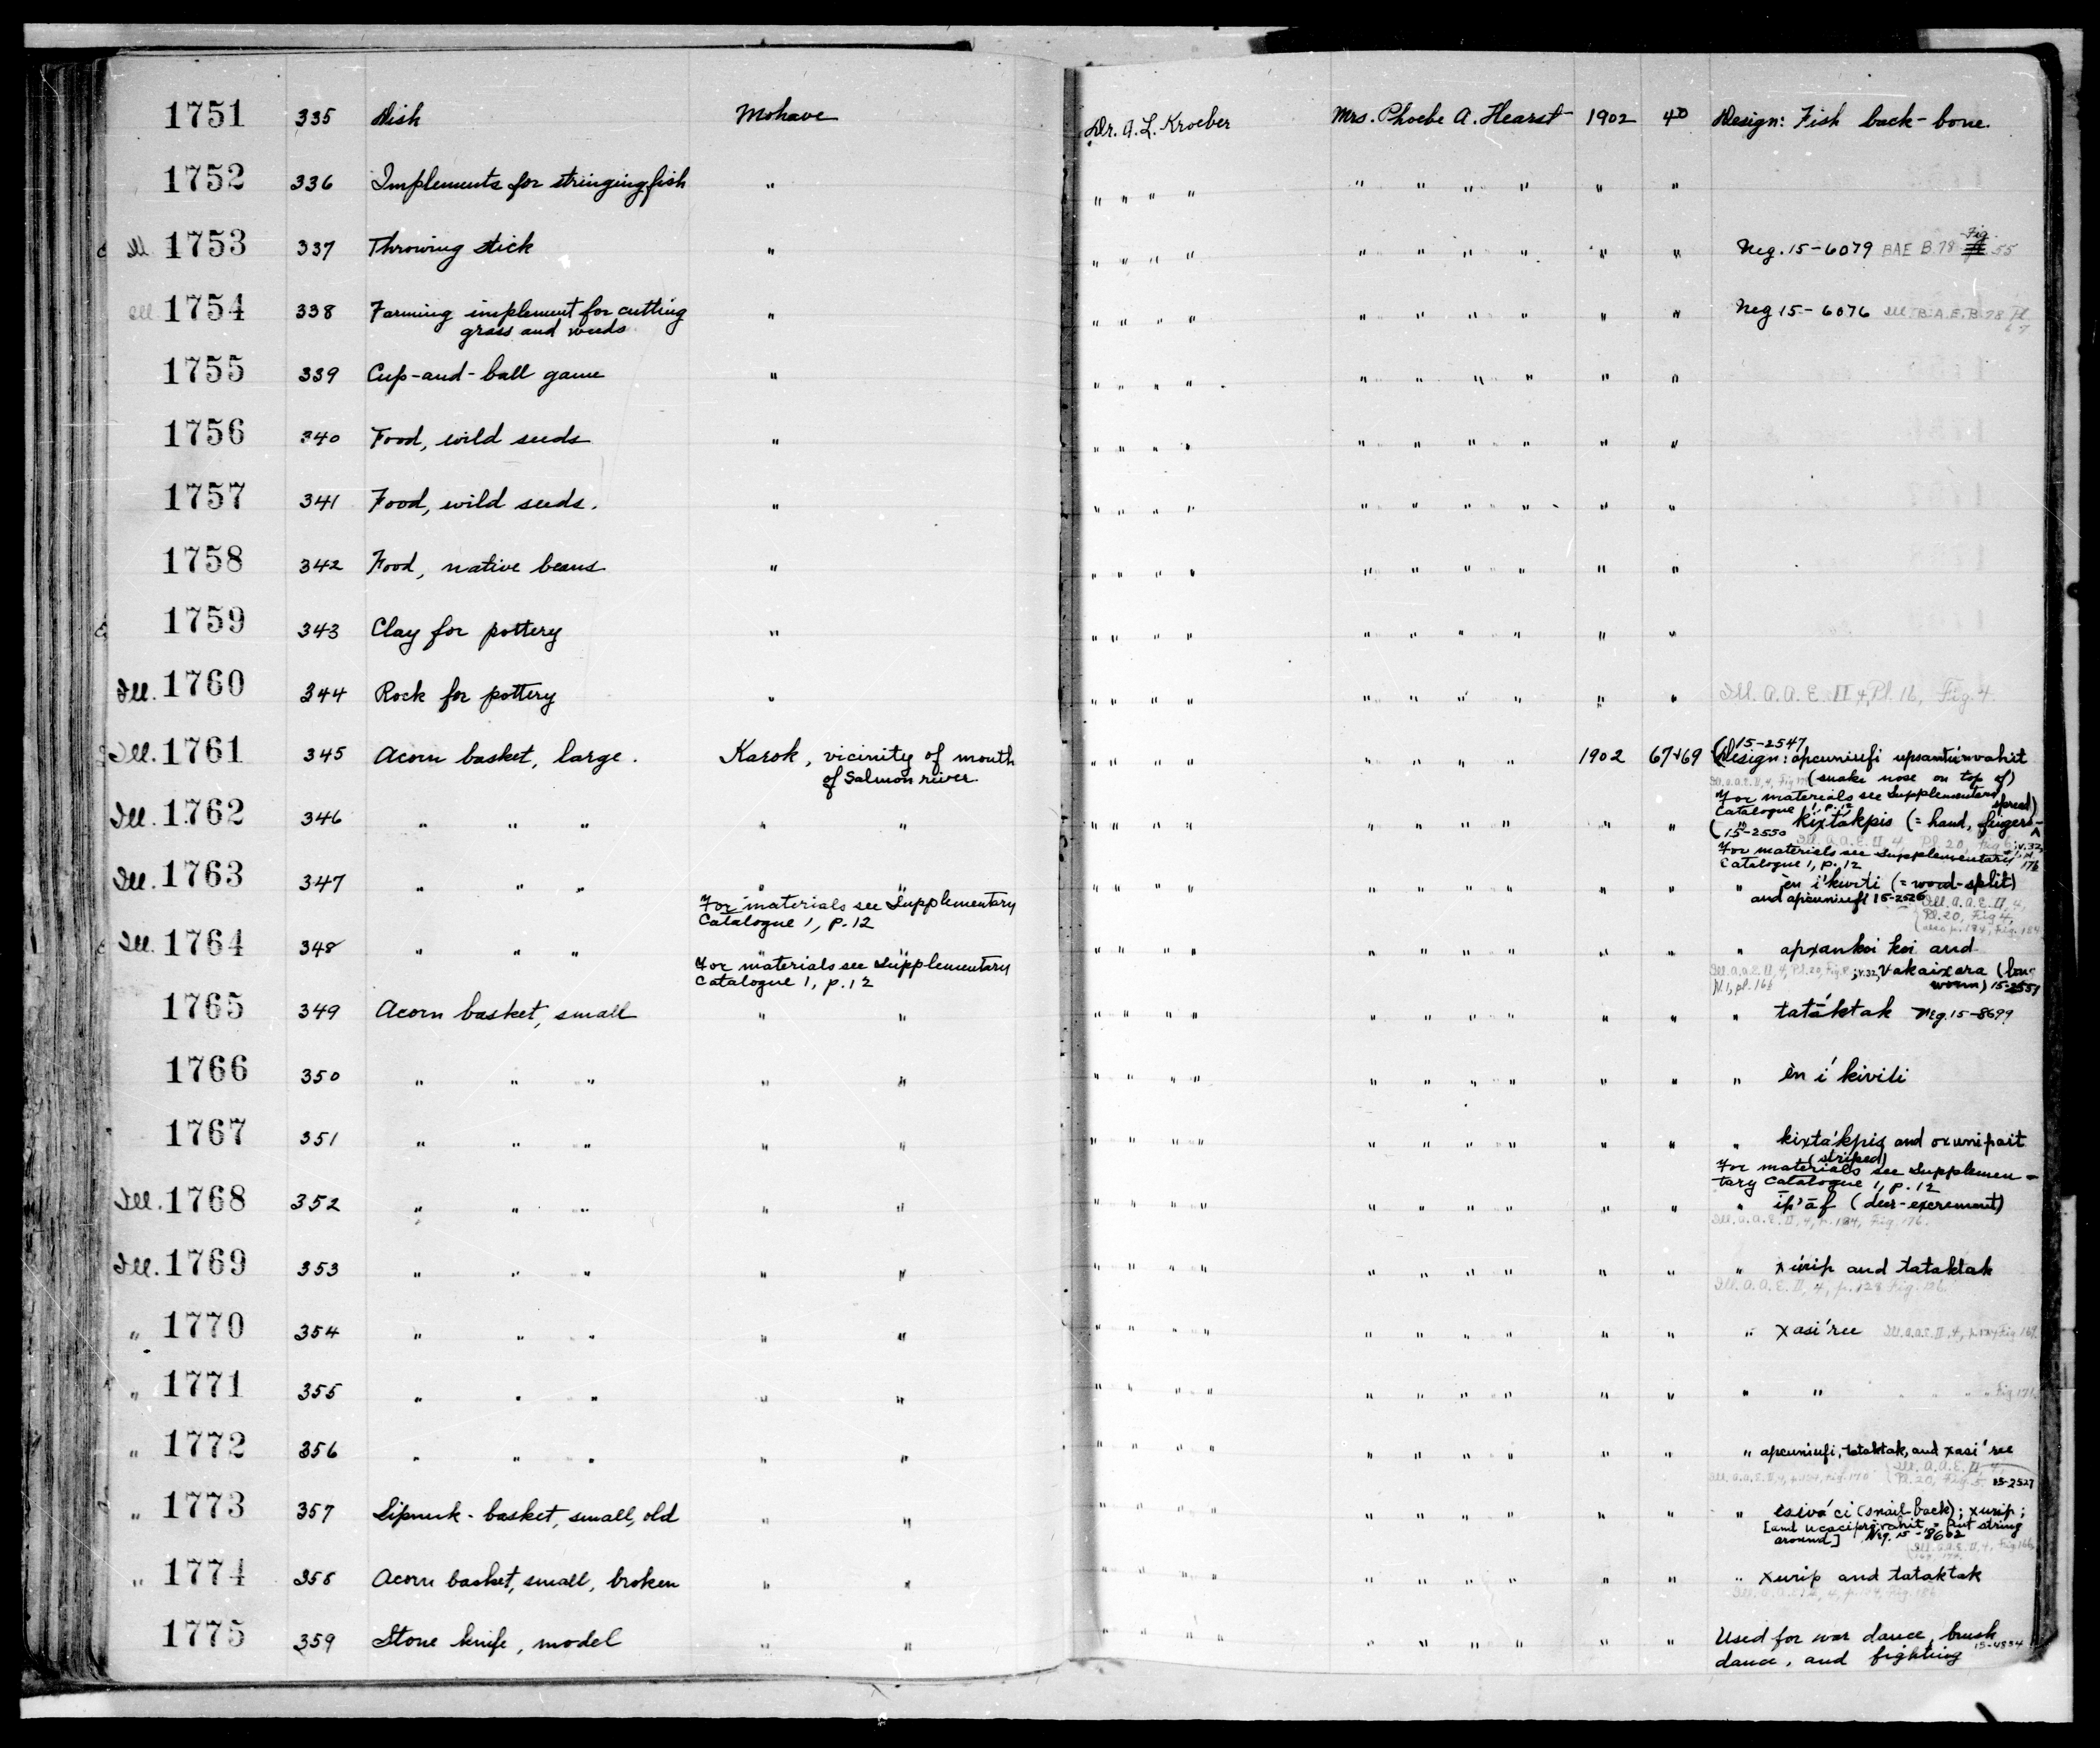 1751 335 Dish Mohave Dr. A. L. Kroeber Mrs. Phoebe A. Hearst 1902 40 Design: Fish back-bone.
1752 336 Implements for stringing fish " " " " " " " " " " "
Ill 1753 337 Throwing stick " " " " " " " " " " " Neg. 15-6079 BAE B.78 Fig. 55
Ill 1754 338 Farming implement for cutting " " " " " " " " " " " Neg 15-6076 Ill. B.A.E. B 78 Pl
grass and weeds 67
1755 339 Cup-and-ball game " " " " " " " " " " "
1756 340 Food, wild seeds " " " " " " " " " " "
1757 341 Food, wild seeds. " " " " " " " " " " "
1758 342 Food, native beans " " " " " " " " " " "
1759 343 Clay for pottery " " " " " " " " " " "
Ill. 1760 344 Rock for pottery " " " " " " " " " " " Ill. A.A.E. II 4, Pl. 16, Fig. 4.
(15-2547
Ill. 1761 345 Acorn basket, large. Karok, vicinity of mouth " " " " " " " " 1902 67+69 Design: apcuniufi upsantunvahit
of Salmon river. (snake nose on top of)
For materials see Supplementary
Catalogue 1, p. 12 spread)
Ill. 1762 346 " " " " " " " " " " " " " " " " kixtákpis (= hand, fingers-
(15-2550 Ill. A.A.E. II, 4, Pl. 20, Fig. 6; v.32,
For materials see Supplementary
Catalogue 1, p. 12
Ill. 1763 347 " " " " " " " " " " " " " " " " ēn i'kiviti (= wood-split)
For materials see Supplementary and apcuniufi 15-2526
Catalogue 1, p. 12 Ill. A.A.E. II, 4,
Pl. 20, Fig 4,
Ill. 1764 348 " " " " " " " " " " " " " " " " apxankoi koi and
For materials see Supplementary Ill. A.A.E. II, 4, Pl. 20, Fig. ; v.32, Vakaixara (long
Catalogue 1, p. 12 worm) 15-2551
1765 349 Acorn basket, small " " " " " " " " " " " " " tatáktak Neg. 15-8699
1766 350 " " " " " " " " " " " " " " " " ēn i' kiviti
1767 351 " " " " " " " " " " " " " " " " kixtákpis and oxunipait
(striped)
For materials see Supplemen-
tary Catalogue 1, p. 12
Ill. 1768 352 " " " " " " " " " " " " " " " " ip'āf (deer-excrement)
Ill. A.A.E. II, 4, p. 124, Fig. 176.
Ill. 1769 353 " " " " " " " " " " " " " " " " xúrip and tataktak
Ill. A.A.E. II, 4, p. 128 Fig. 186
" 1770 354 " " " " " " " " " " " " " " " " xasi'ree Ill. A.A.E. II, 4,
" 1771 355 " " " " " " " " " " " " " " " " " " " " Fig. 171
" 1772 356 " " " " " " " " " " " " " " " " apcuniufi, tataktak, and xasi'ree
Ill. A.A.E. II, 4, Pl. 20, Fig. 5 15-2527
" 1773 357 Sipnuk-basket, small, old " " " " " " " " " " " " " esivá'ci (snail-back); xurip;
[and ucaciprivahit = Put string
around] Neg. 15-8602
" 1774 358 Acorn basket, small, broken " " " " " " " " " " " " " xurip and tataktak
1775 359 Stone knife, model " " " " " " " " " " " " Used for war dance, brush
dance, and fighting 15-4834